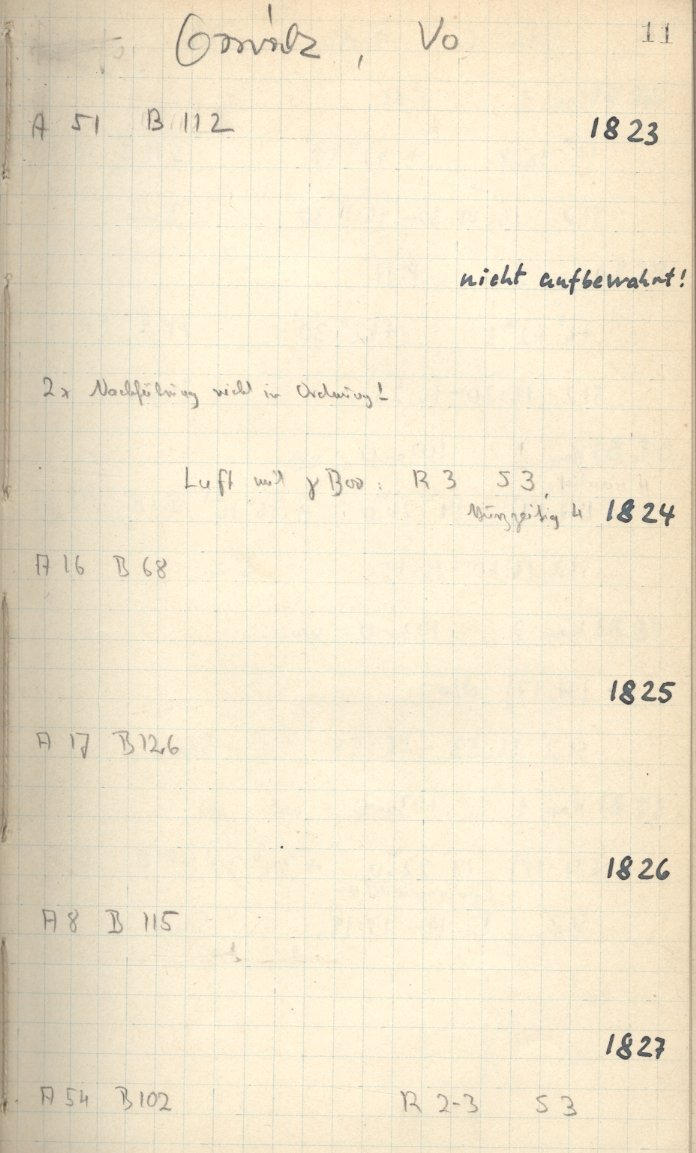 , Vo 11
A 51 B 112 1823
nicht aufbewahrt!
2x Nachführung nicht in Ordnung!
Luft mit γ Boo: R 3 S 3,
4 1824
A 16 B 68
1825
A 17 B 126
1826
A 8 B 115
1827
A 54 B 102 R 2-3 S 3